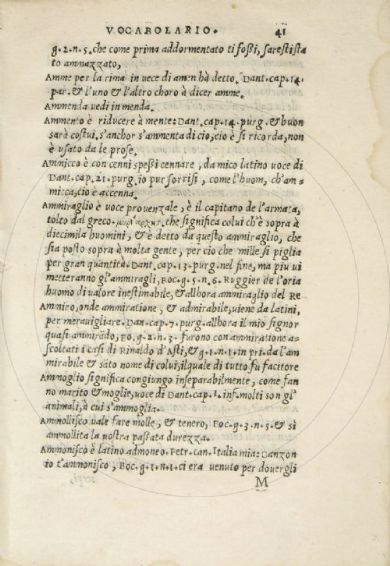 VOCABOLARIO.
41
g.2.n.5. che come prima addormentato ti foßi, sarestista
to amnazzato,
Amme per la rima in uece di amen hà detto. Dant.cap.14.
par. & l'uno & l'altro choro à dicer amme.
Ammenda uedi in menda.
Ammento è riducere à mente: Dant.cap.14.purg. & buon
sarà costui, s'anchor s'ammenta di cio, ciò è si ricorda, non
è usato da le prose.
Ammicco è con cenni speßi cennare, da mico latino uoce di
Dant.cap.21.purg. io pur sorrisi, come l'huom, ch'am=
micca, ciò è accenna.
Ammiraglio è uoce prouenzale, è il capitano de l'armata,
tolto dal greco. che significa colui ch'è sopra à
diecimila huomini, & è detto da questo ammiraglio, che
sia posto sopra à molta gente, per cio che mille si piglia
per gran quantità. Dant.cap.13.purg. nel fine, ma piu ui
metteranno gl'ammiragli, Boc.g.5.n.6. Ruggier de l'oria
huomo di ualore inestimabile, & allhora ammiraglio del RE
Ammiro, onde ammiratione, & admirabile, uiene da latini,
per merauigliare. Dan.cap.7.purg. allhora il mio signor
quasi ammirãdo. Bo.g.2.n.3. furono con ammiratione a=
scoltati i casi di Rinaldo d'Asti, & g.1.n.1. in pri. da l'am
mirabile & sãto nome di colui, ilquale di tutto fu facitore
Ammoglio significa congiungo inseparabilmente, come fan
no marito & moglie, uoce di Dant.cap.1.inf. molti son gl'
animali, à cui s'ammoglia.
Ammollisco uale fare molle, & tenero, Boc.g.3.n.5. & si
ammollita la uostra passata durezza.
Ammonisco è latino admoneo. Petr.can. Italia mia: Canzon
io t'ammonisco, Boc.g.1.n.1. ci era uenuto per douergli
M